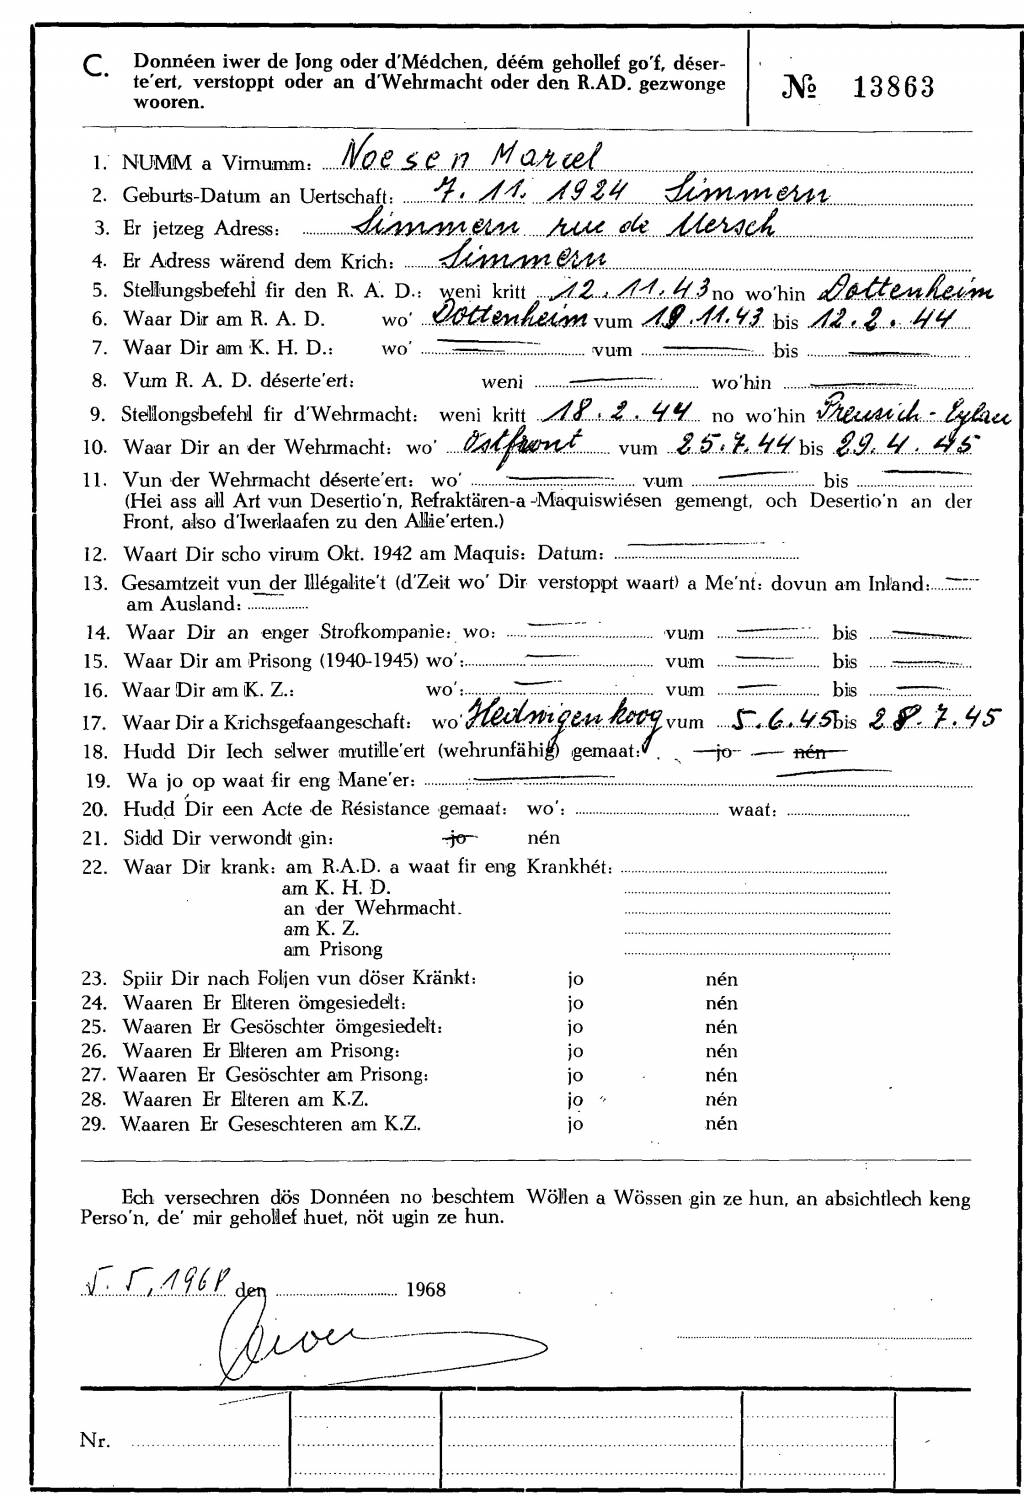 C. Donnéen iwer de Jong oder d'Médchen, déém gehollef go'f, déser-
te'ert, verstoppt oder an d'Wehrmacht oder den R.AD. gezwonge
wooren.
№ 13863
1. NUMM a Virnumm: Noesen Marcel
2. Geburts-Datum an Uertschaft: 7. 11. 1924 Simmern
3. Er jetzeg Adress: Simmern rue de Mersch
4. Er Adress wärend dem Krich: Simmern
5. Stellungsbefehl fir den R. A. D.: weni kritt 12. 11. 43 no wo'hin Dottenheim
6. Waar Dir am R. A. D. wo' Dottenheim vum 19.11.43 bis 12. 2. 44
7. Waar Dir am K. H. D.: wo' vum bis
8. Vum R. A. D. déserte'ert: weni wo'hin
9. Stellongsbefehl fir d'Wehrmacht: weni kritt 18. 2. 44 no wo'hin Preusich-Eylau
10. Waar Dir an der Wehrmacht: wo' Ostfront vum 25.7.44 bis 29. 4. 45
11. Vun der Wehrmacht déserte'ert: wo' vum bis
(Hei ass all Art vun Desertio'n, Refraktären-a -Maquiswiésen gemengt, och Desertio'n an der
Front, also d'Iwerlaafen zu den Allie'erten.)
12. Waart Dir scho virum Okt. 1942 am Maquis: Datum:
13. Gesamtzeit vun der Illégalite't (d'Zeit wo' Dir verstoppt waart) a Me'nt: dovun am Inland:
am Ausland:
14. Waar Dir an enger Strofkompanie: wo: vum bis
15. Waar Dir am Prisong (1940-1945) wo': vum bis
16. Waar Dir am K. Z.: wo': vum bis
17. Waar Dir a Krichsgefaangeschaft: wo' Hedwigenkoog vum 5. 6. 45 bis 28. 7. 45
18. Hudd Dir Iech selwer mutille'ert (wehrunfähig) gemaat: jo — nén
19. Wa jo op waat fir eng Mane'er:
20. Hudd Dir een Acte de Résistance gemaat: wo': waat:
21. Sidd Dir verwondt gin: jo nén
22. Waar Dir krank: am R.A.D. a waat fir eng Krankhét:
am K. H. D.
an der Wehrmacht.
am K. Z.
am Prisong
23. Spiir Dir nach Foljen vun döser Kränkt: jo nén
24. Waaren Er Elteren ömgesiedelt: jo nén
25. Waaren Er Gesöschter ömgesiedelt: jo nén
26. Waaren Er Elteren am Prisong: jo nén
27. Waaren Er Gesöschter am Prisong: jo nén
28. Waaren Er Elteren am K.Z. jo nén
29. Waaren Er Geseschteren am K.Z. jo nén
Ech versechren dös Donnéen no beschtem Wöllen a Wössen gin ze hun, an absichtlech keng
Perso'n, de' mir gehollef huet, nöt ugin ze hun.
5. 5. 1968 den 1968
Nr.